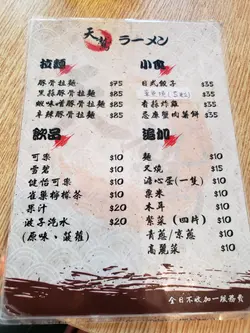 天龍 ラーメン
拉麵
豚骨拉麵 $75
黑蒜豚骨拉麵 $85
蝦味噌豚骨拉麵 $85
辛辣豚骨拉麵 $85
小食
日式餃子 $35
$35
香蒜炸雞 $35
忌廉蟹肉薯餅 $35
飲品
可樂 $10
雪碧 $10
健怡可樂 $10
雀巢檸檬茶 $10
果汁 $20
波子汽水 $20
(原味、菠蘿)
追加
麵 $10
叉燒 $15
溏心蛋(一隻) $10
粟米 $10
木耳 $10
紫菜(四片) $10
青蔥/京蔥 $10
高麗菜 $10
全日不收加一服務費